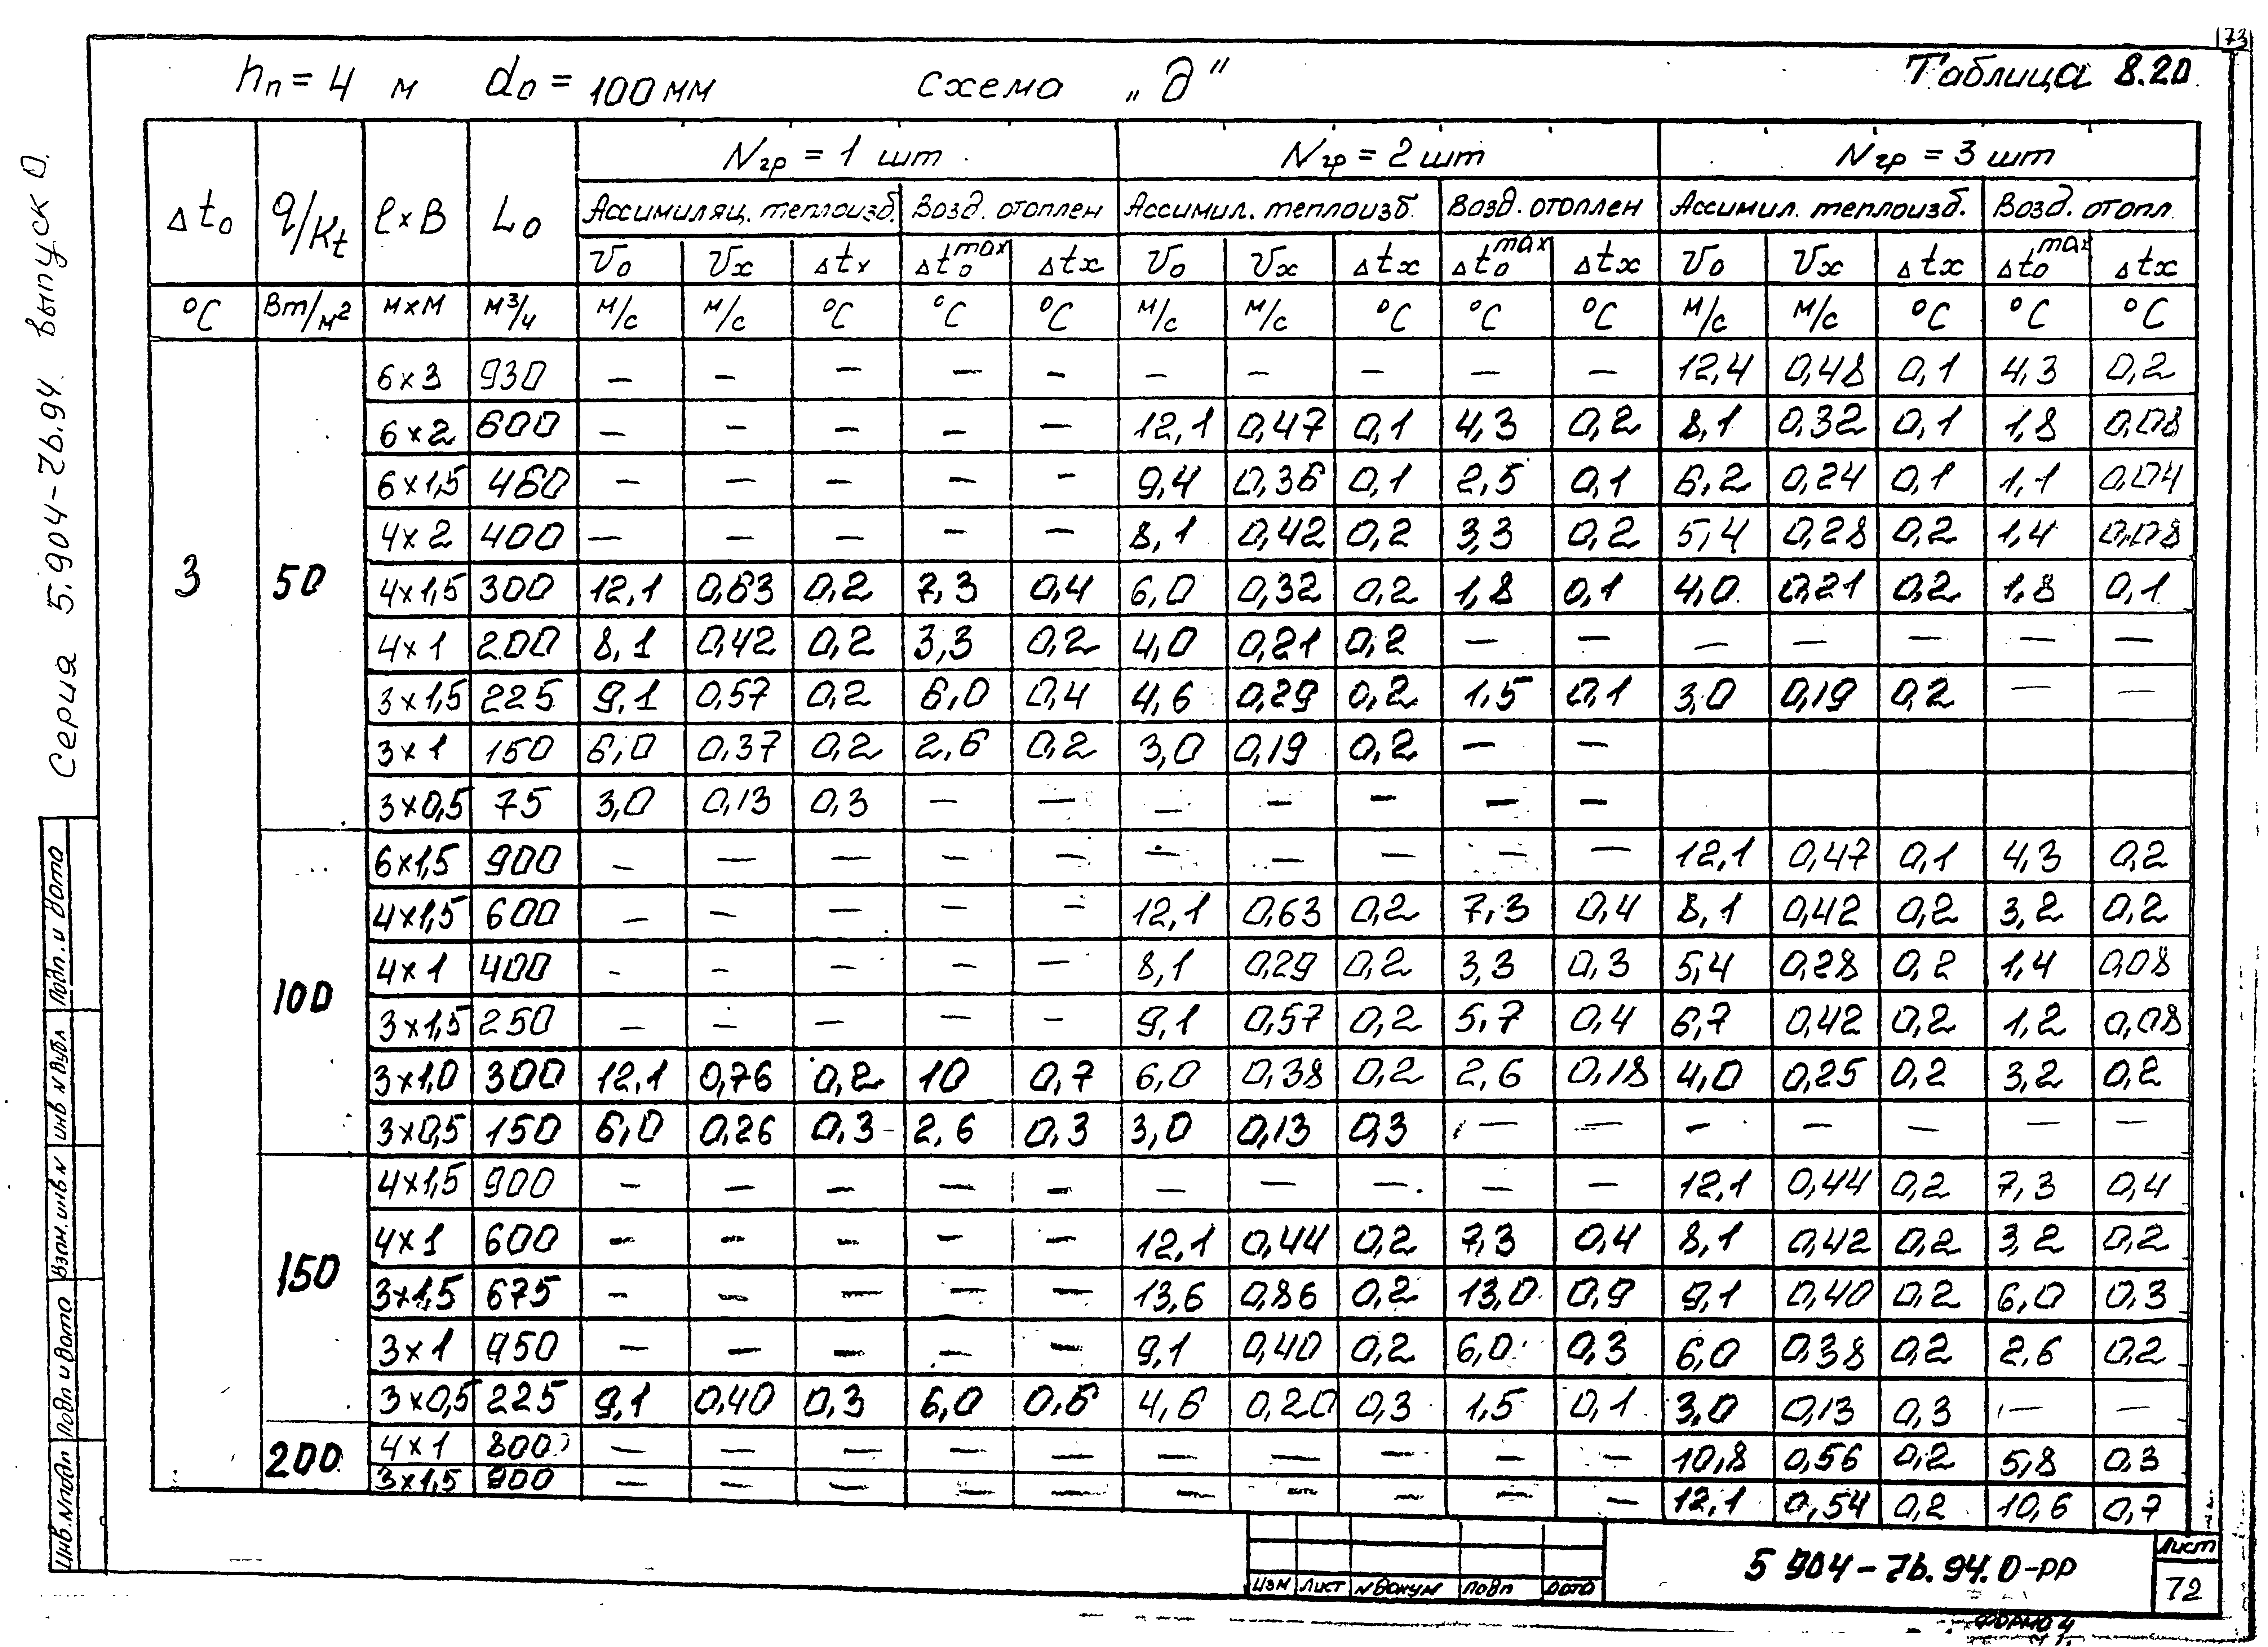 73
hп = 4 м   dо = 100 мм   схема „д"   Таблица 8.20
Серия 5.904-7b.94. выпуск 0.
Δtо | q/Kt | l×B | Lо | Nгр = 1 шт | Nгр = 2 шт | Nгр = 3 шт
Ассимиляц. теплоизб. | Возд. отоплен | Ассимил. теплоизб. | Возд. отоплен | Ассимил. теплоизб. | Возд. отопл.
Vо | Vx | Δtx | Δtоmax | Δtx | Vо | Vx | Δtx | Δtоmax | Δtx | Vо | Vx | Δtx | Δtоmax | Δtx
°C | Вт/м² | м×м | м³/ч | м/с | м/с | °C | °C | °C | м/с | м/с | °C | °C | °C | м/с | м/с | °C | °C | °C
3 | 50 | 6×3 | 930 | — | — | — | — | — | — | — | — | — | — | 12,4 | 0,48 | 0,1 | 4,3 | 0,2
6×2 | 600 | — | — | — | — | — | 12,1 | 0,47 | 0,1 | 4,3 | 0,2 | 8,1 | 0,32 | 0,1 | 1,8 | 0,08
6×1,5 | 460 | — | — | — | — | — | 9,4 | 0,36 | 0,1 | 2,5 | 0,1 | 6,2 | 0,24 | 0,1 | 1,1 | 0,04
4×2 | 400 | — | — | — | — | — | 8,1 | 0,42 | 0,2 | 3,3 | 0,2 | 5,4 | 0,28 | 0,2 | 1,4 | 0,08
4×1,5 | 300 | 12,1 | 0,63 | 0,2 | 7,3 | 0,4 | 6,0 | 0,32 | 0,2 | 1,8 | 0,1 | 4,0 | 0,21 | 0,2 | 1,8 | 0,1
4×1 | 200 | 8,1 | 0,42 | 0,2 | 3,3 | 0,2 | 4,0 | 0,21 | 0,2 | — | — | — | — | — | — | —
3×1,5 | 225 | 9,1 | 0,57 | 0,2 | 6,0 | 0,4 | 4,6 | 0,29 | 0,2 | 1,5 | 0,1 | 3,0 | 0,19 | 0,2 | — | —
3×1 | 150 | 6,0 | 0,37 | 0,2 | 2,6 | 0,2 | 3,0 | 0,19 | 0,2 | — | —
3×0,5 | 75 | 3,0 | 0,13 | 0,3 | — | — | — | — | — | — | —
100 | 6×1,5 | 900 | — | — | — | — | — | — | — | — | — | — | 12,1 | 0,47 | 0,1 | 4,3 | 0,2
4×1,5 | 600 | — | — | — | — | — | 12,1 | 0,63 | 0,2 | 7,3 | 0,4 | 8,1 | 0,42 | 0,2 | 3,2 | 0,2
4×1 | 400 | — | — | — | — | — | 8,1 | 0,29 | 0,2 | 3,3 | 0,3 | 5,4 | 0,28 | 0,2 | 1,4 | 0,08
3×1,5 | 250 | — | — | — | — | — | 9,1 | 0,57 | 0,2 | 5,7 | 0,4 | 6,7 | 0,42 | 0,2 | 1,2 | 0,08
3×1,0 | 300 | 12,1 | 0,76 | 0,2 | 10 | 0,7 | 6,0 | 0,38 | 0,2 | 2,6 | 0,18 | 4,0 | 0,25 | 0,2 | 3,2 | 0,2
3×0,5 | 150 | 6,0 | 0,26 | 0,3 | 2,6 | 0,3 | 3,0 | 0,13 | 0,3 | — | — | — | — | — | — | —
150 | 4×1,5 | 900 | — | — | — | — | — | — | — | — | — | — | 12,1 | 0,44 | 0,2 | 7,3 | 0,4
4×1 | 600 | — | — | — | — | — | 12,1 | 0,44 | 0,2 | 7,3 | 0,4 | 8,1 | 0,42 | 0,2 | 3,2 | 0,2
3×1,5 | 675 | — | — | — | — | — | 13,6 | 0,86 | 0,2 | 13,0 | 0,9 | 9,1 | 0,40 | 0,2 | 6,0 | 0,3
3×1 | 950 | — | — | — | — | — | 9,1 | 0,40 | 0,2 | 6,0 | 0,3 | 6,0 | 0,38 | 0,2 | 2,6 | 0,2
3×0,5 | 225 | 9,1 | 0,40 | 0,3 | 6,0 | 0,6 | 4,6 | 0,20 | 0,3 | 1,5 | 0,1 | 3,0 | 0,13 | 0,3 | — | —
200 | 4×1 | 800 | — | — | — | — | — | — | — | — | — | — | 10,8 | 0,56 | 0,2 | 5,8 | 0,3
3×1,5 | 900 | — | — | — | — | — | — | — | — | — | — | 12,1 | 0,54 | 0,2 | 10,6 | 0,7
Инв.Nподл | Подп и дата | Взам.инв N | инв N дубл | Подп. и дата
изм | лист | N докум | подп | дата
5 904-7b.94.0-РР
Лист
72